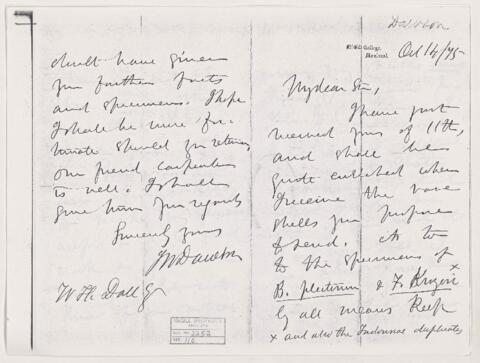 Dawson
McGill College,
Montreal.
Oct 14/75
My dear Sir,
I have just
received yours of 11th,
and shall be
quite enriched when
I receive the rare
shells you propose
to send. As to
to the specimens of
B. plectrum & F. Krugeri x
by all means keep
x and also the duplicates
doubt have given
you further facts
and specimens. I hope
I shall be more for-
tunate should you return.
our friend Carpenter
is well. I shall
give him your regards
Sincerely yours
JWDawson
W H Dall Esq